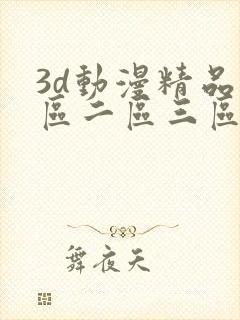 3d動漫精品
區二區三區
舞夜天